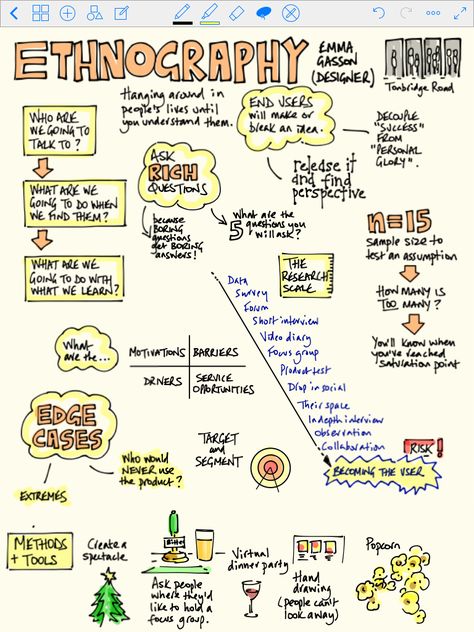 ETHNOGRAPHY
(EMMA
GASSON
(DESIGNER)
Tonbridge Road
Hanging around in
people's lives until
you understand them.
END USERS
will make or
break an idea.
DECOUPLE
"SUCCESS"
FROM
"PERSONAL
GLORY".
release it
and find
perspective
WHO ARE
WE GOING TO
TALK TO?
WHAT ARE WE
GOING TO DO WHEN
WE FIND THEM?
WHAT ARE WE
GOING TO DO WITH
WHAT WE LEARN?
ASK
RICH
QUESTIONS
because
BORING
questions
get BORING
answers!
5 What are the
the questions you
will ask?
n=15
sample size to
test an assumption
HOW MANY IS
TOO MANY?
You'll know when
you've reached
saturation point
THE
RESEARCH
SCALE
Data
Survey
Forum
Short interview
Video diary
Focus group
Product test
Drop in social
Their space
Indepth interview
Observation
Collaboration
RISK!
BECOMING THE USER
What
are the...
MOTIVATIONS
BARRIERS
DRIVERS
SERVICE
OPORTUNITIES
EDGE
CASES
EXTREMES
Who would
NEVER use
the product?
TARGET
and
SEGMENT
METHODS
+ TOOLS
Create a
spectacle
Ask people
where they'd
like to hold a
focus group.
Virtual
dinner party
Hand
drawing
(people can't
look away)
Popcorn